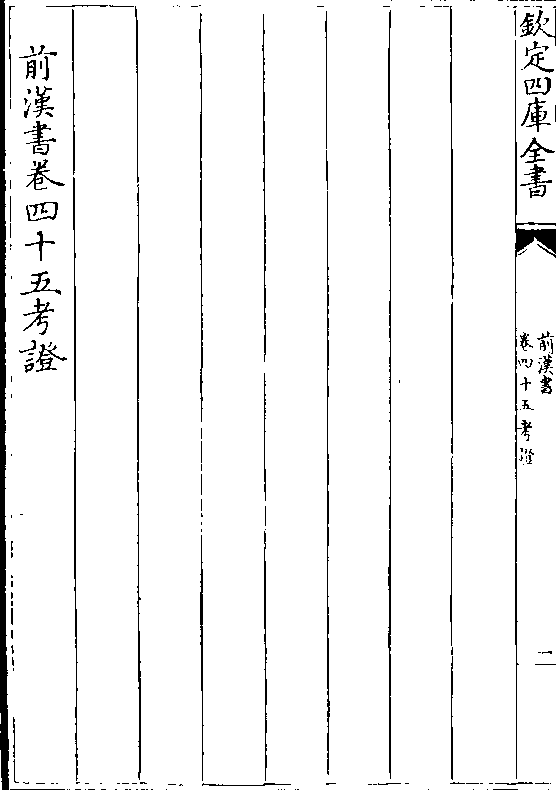 欽定四庫全書
前漢書
卷四十五考證
二
前漢書卷四十五考證